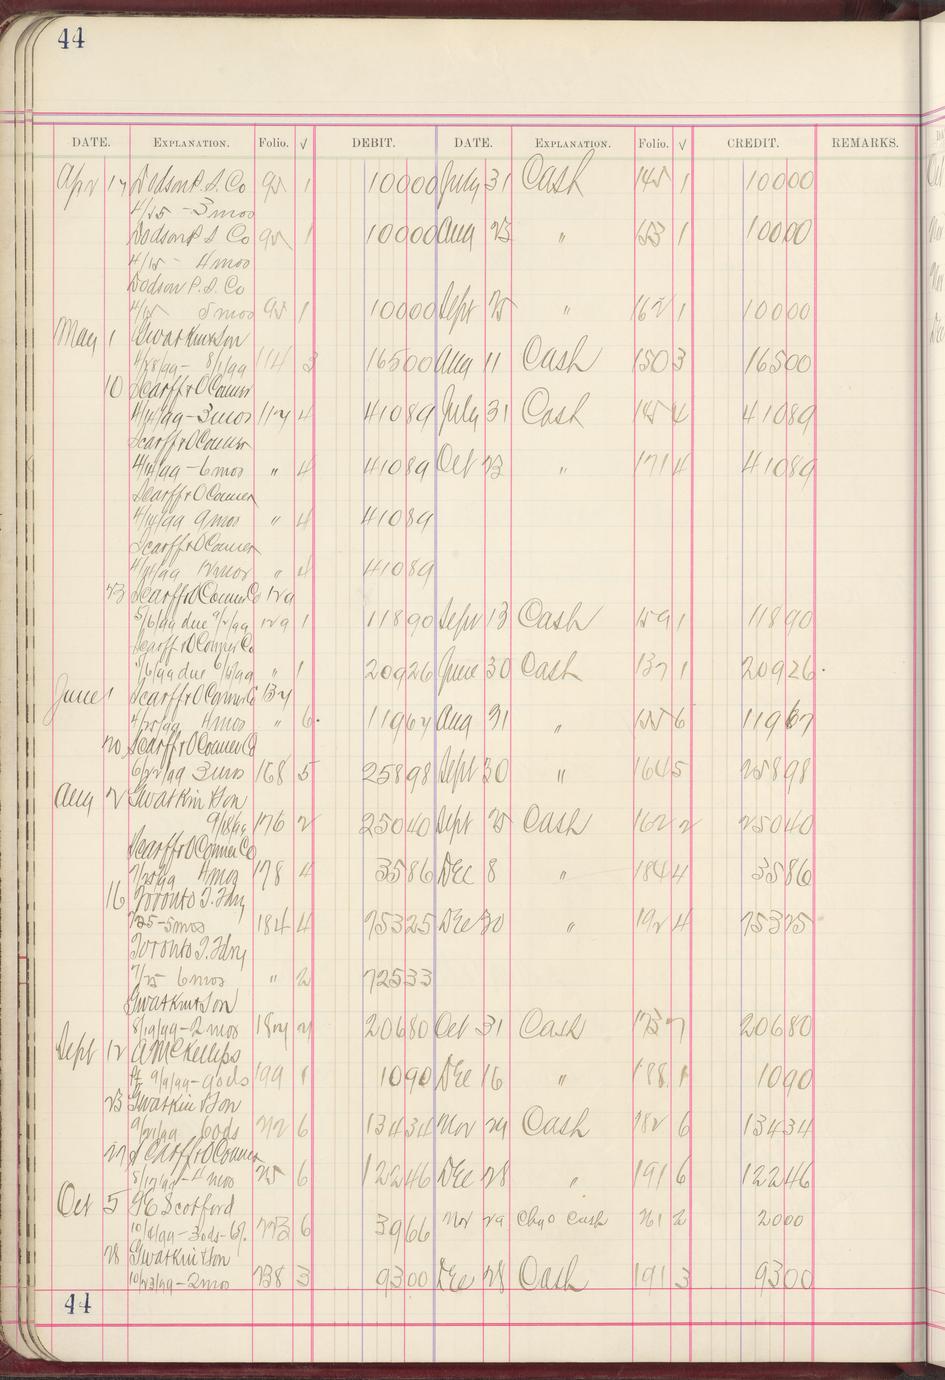 44
DATE. EXPLANATION. Folio. √ DEBIT. DATE. EXPLANATION. Folio. √ CREDIT. REMARKS.
Apr 17 Dodson P. S. Co 95 1 100 00 July 31 Cash 145 1 100 00
4/15 - 3 mos
Dodson P S Co 95 1 100 00 Aug 23 " 153 1 100 00
4/15 - 4 mos
Dodson P. S. Co
4/15 5 mos 95 1 100 00 Sept 25 " 162 1 100 00
May 1 Gwatkin & Son
4/28/99 - 8/1/99 114 3 165 00 Aug 11 Cash 150 3 165 00
10 Scarff & O'Connor
4/14/99 - 3 mos 117 4 410 89 July 31 Cash 145 4 410 89
Scarff & O'Connor
4/14/99 - 6 mos " 4 410 89 Oct 23 " 171 4 410 89
Scarff & O'Connor
4/14/99 9 mos " 4 410 89
Scarff & O'Connor
4/14/99 12 mos " 4 410 89
23 Scarff & O'Connor Co 129
5/6/99 due 9/2/99 129 1 118 90 Sept 13 Cash 159 1 118 90
Scarff & O'Connor Co
5/6/99 due 6/ /99 " 1 209 26 June 30 Cash 137 1 209 26
June 1 Scarff & O'Connor Co 137
4/25/99 4 mos " 6 119 67 Aug 31 " 155 6 119 67
20 Scarff & O'Connor Co
6/22/99 3 mos 168 5 258 98 Sept 30 " 164 5 258 98
Aug 2 Gwatkin & Son
9/18/99 176 2 250 40 Sept 25 Cash 162 2 250 40
Scarff & O'Connor Co
7/25/99 4 mos 178 4 35 86 Dec 8 " 184 4 35 86
16 Toronto T. Fdry
7/25 - 5 mos 184 4 753 25 Dec 30 " 192 4 753 25
Toronto T. Fdry
7/25 6 mos " 2 725 33
Gwatkin & Son
8/19/99 - 2 mos 187 7 206 80 Oct 31 Cash 173 7 206 80
Sept 12 A McKellips
9/9/99 - 90 ds 199 1 10 90 Dec 16 " 188 1 10 90
23 Gwatkin & Son
9/21/99 60 ds 212 6 134 34 Nov 29 Cash 182 6 134 34
27 Scarff & O'Connor
8/17/99 - 4 mos 215 6 122 46 Dec 28 " 191 6 122 46
Oct 5 G E Scotford
10/4/99 - 30 ds - 6%. 223 6 39 66 Nov 29 Chgo Cash 261 2 20 00
28 Gwatkin & Son
10/23/99 - 2 mos 238 3 93 00 Dec 28 Cash 191 3 93 00
44